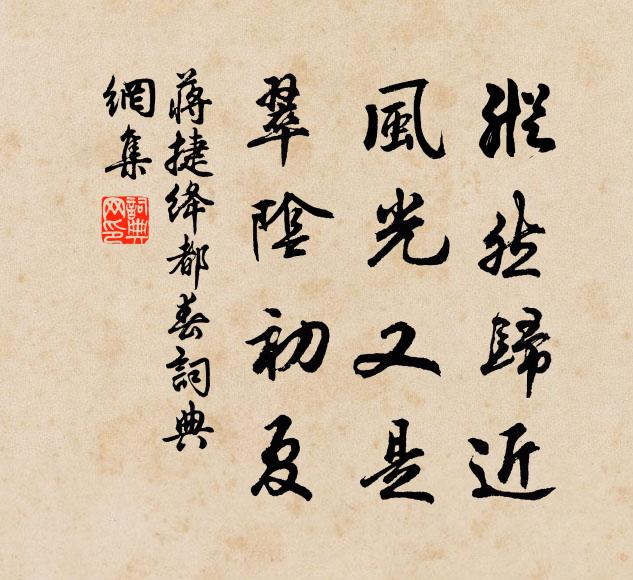 縱然歸近
風光又是
翠陰初夏
蔣捷绛都春詞典
網集
詞典網印